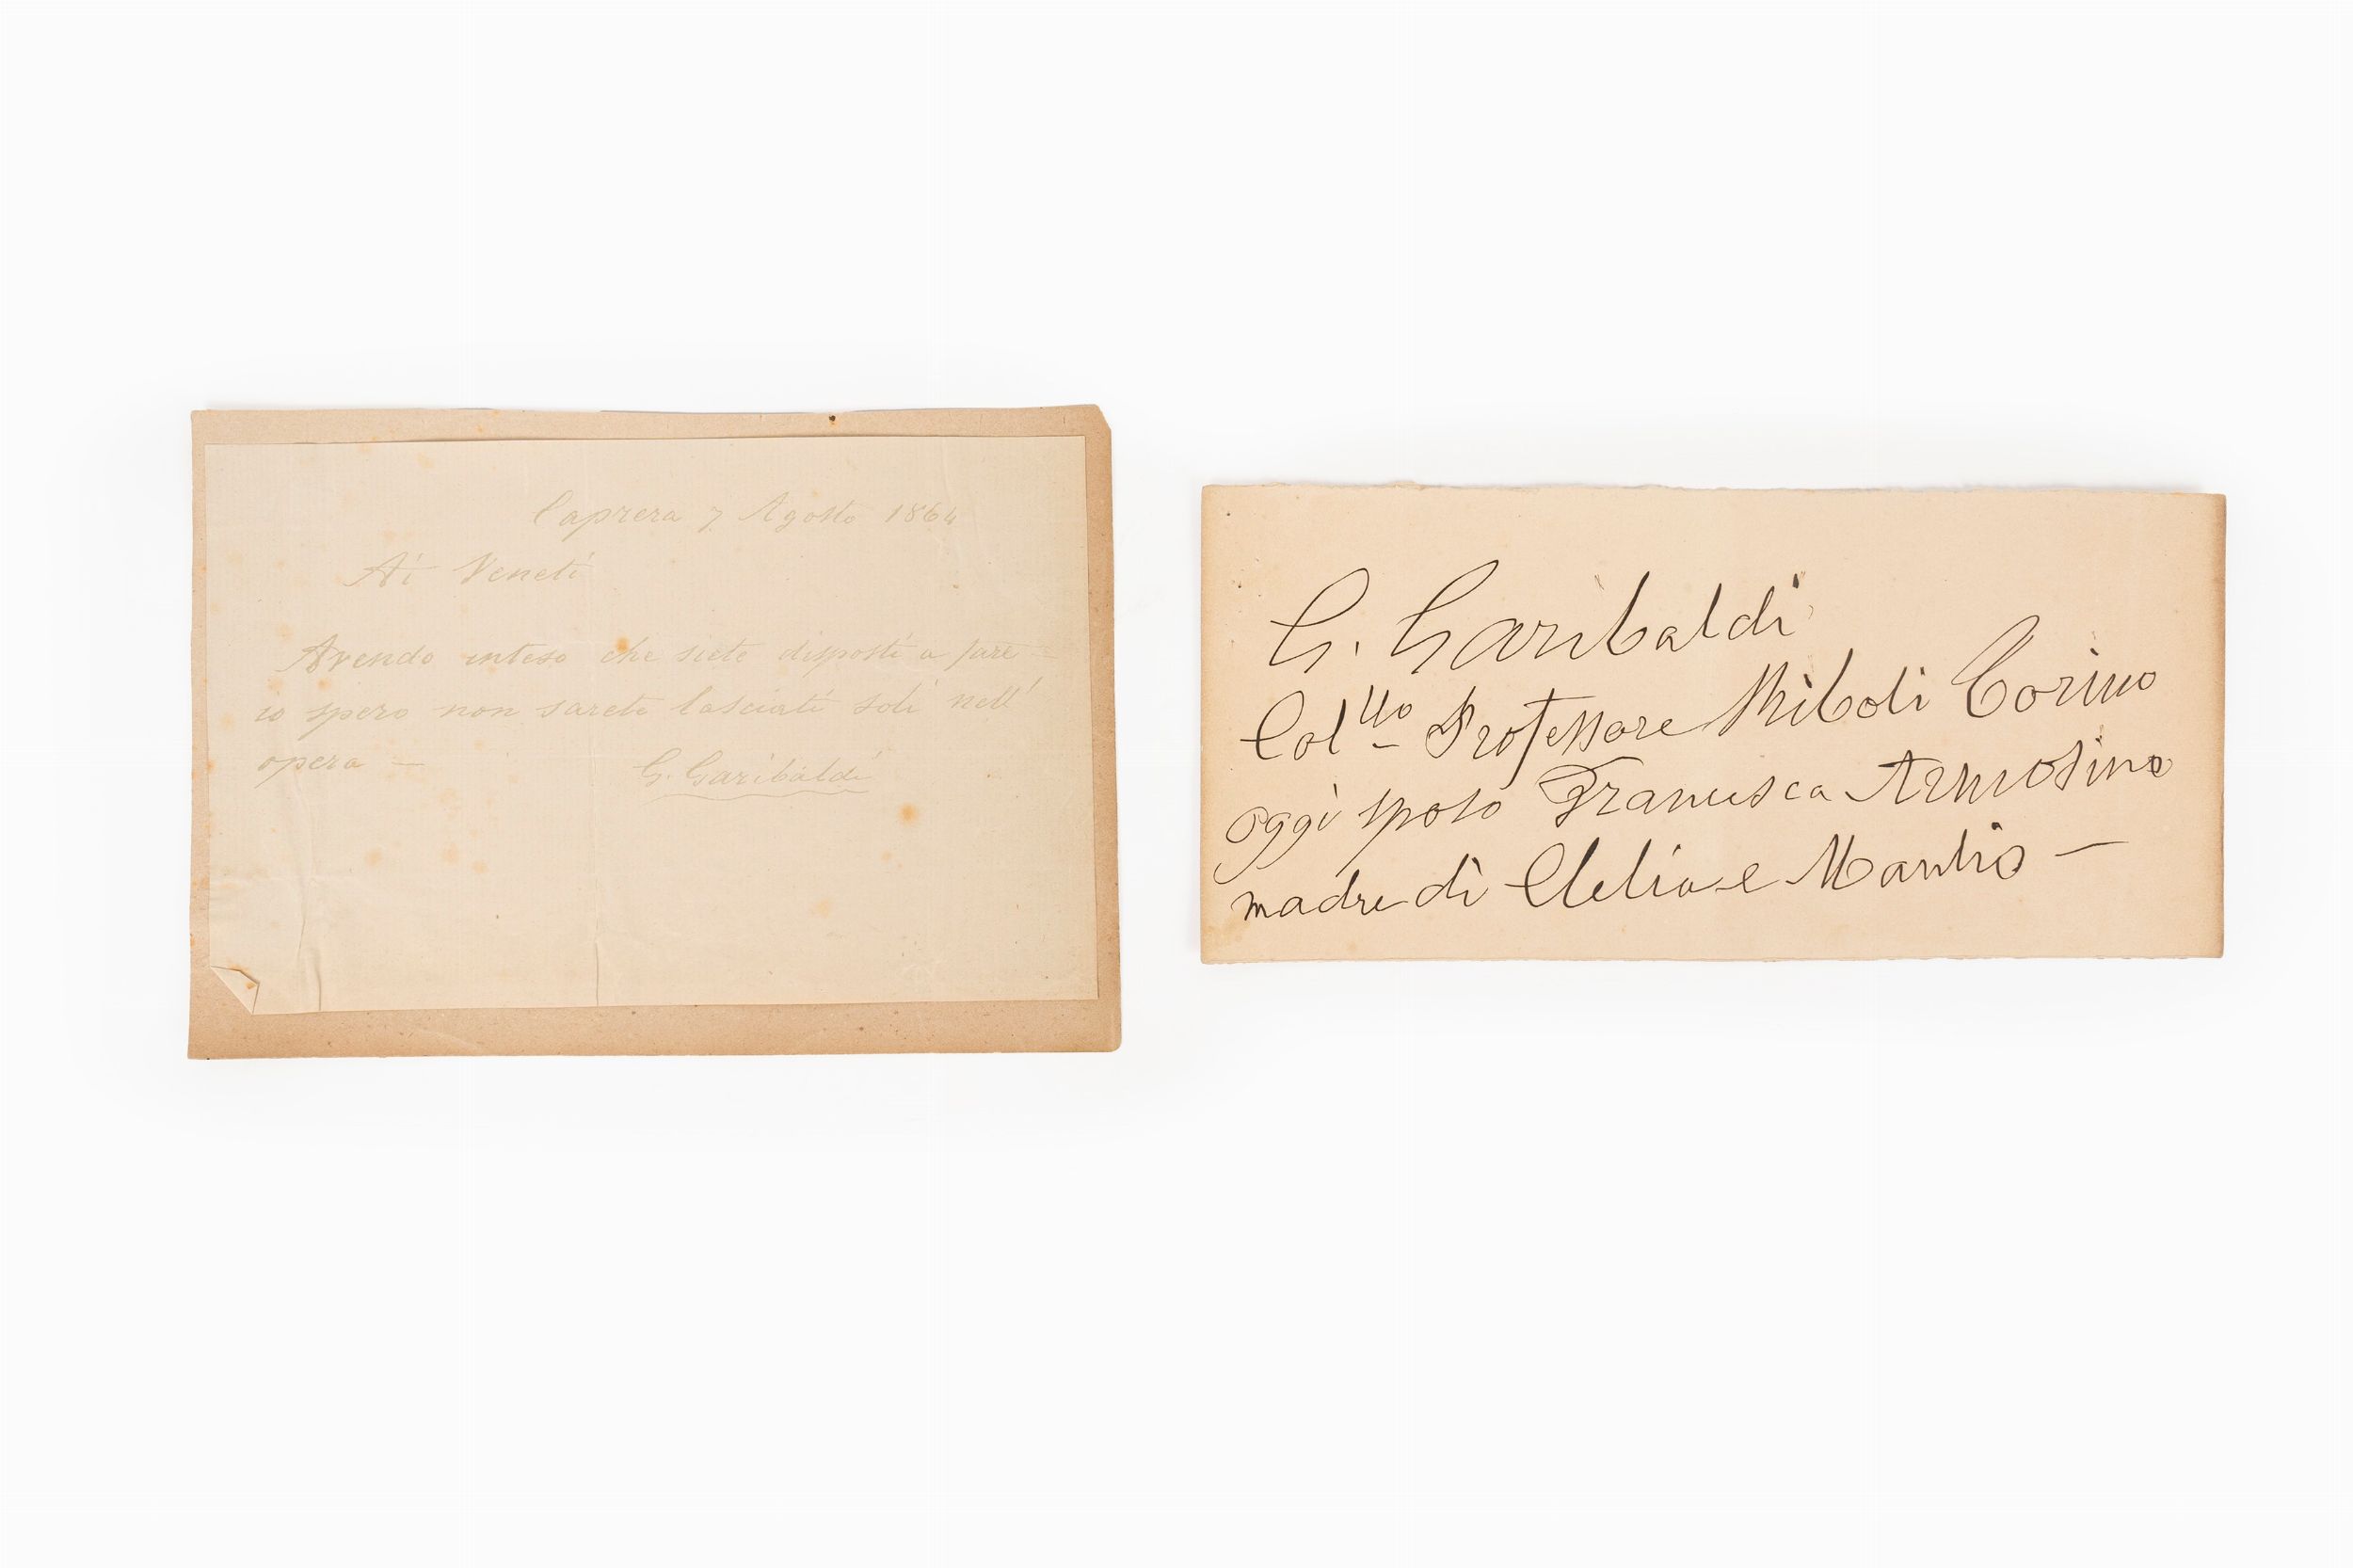 Caprera 7 Agosto 1864
Ai Veneti
Avendo inteso che siete disposti a fare –
io spero non sarete lasciati soli nell'
opera –
G. Garibaldi
G. Garibaldi
Col.llo Professore Riboli Torino
oggi sposo Francesca Armosino
madre di Clelia e Manlio –